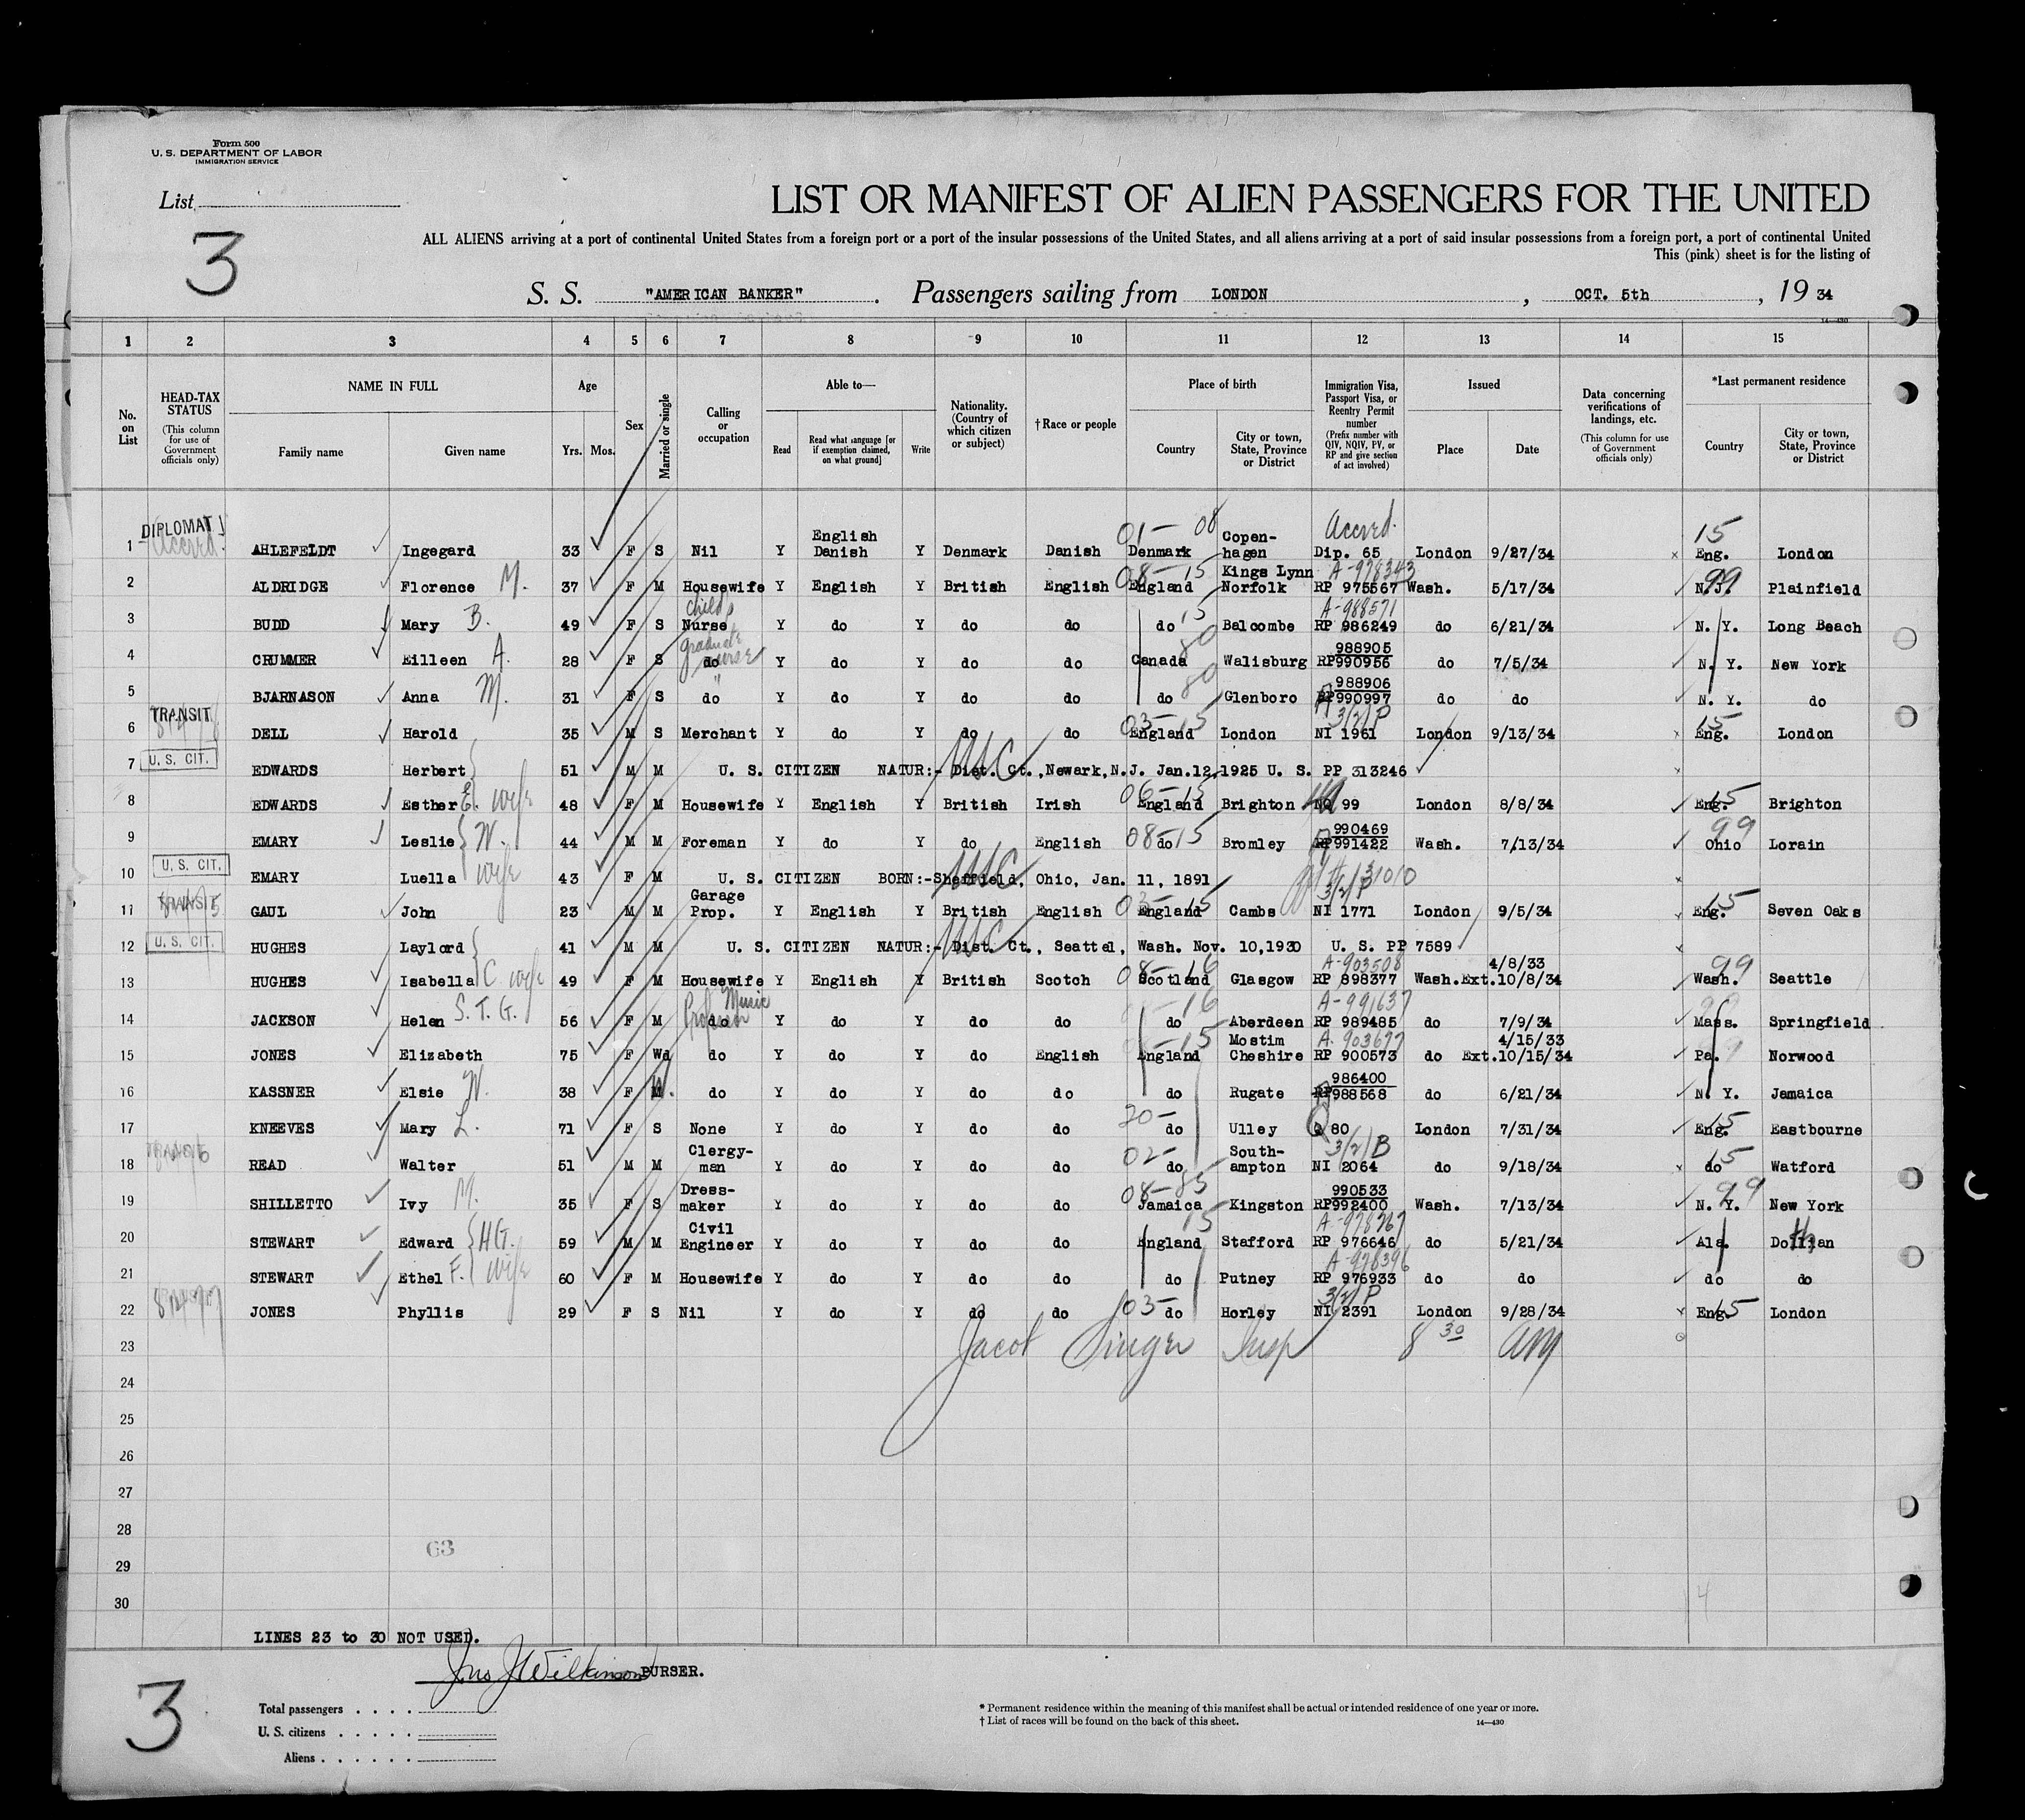 Form 500
U. S. DEPARTMENT OF LABOR
IMMIGRATION SERVICE
List
3
LIST OR MANIFEST OF ALIEN PASSENGERS FOR THE UNITED
ALL ALIENS arriving at a port of continental United States from a foreign port or a port of the insular possessions of the United States, and all aliens arriving at a port of said insular possessions from a foreign port, a port of continental United
This (pink) sheet is for the listing of
S. S. "AMERICAN BANKER" . Passengers sailing from LONDON , OCT. 5th , 19 34
14—430
1 2 3 4 5 6 7 8 9 10 11 12 13 14 15
No. on List
HEAD-TAX STATUS (This column for use of Government officials only)
NAME IN FULL Family name Given name
Age Yrs. Mos.
Sex
Married or single
Calling or occupation
Able to— Read Read what language [or if exemption claimed, on what ground] Write
Nationality. (Country of which citizen or subject)
†Race or people
Place of birth Country City or town, State, Province or District
Immigration Visa, Passport Visa, or Reentry Permit number (Prefix number with QIV, NQIV, PV, or RP and give section of act involved)
Issued Place Date
Data concerning verifications of landings, etc. (This column for use of Government officials only)
*Last permanent residence Country City or town, State, Province or District
DIPLOMAT 01— 08 Accred. 15
1 AHLEFELDT Ingegard 33 F S Nil Y English Danish Y Denmark Danish Denmark Copen-hagen Dip. 65 London 9/27/34 Eng. London
08—15 A-978343 99
2 ALDRIDGE Florence M. 37 F M Housewife Y English Y British English England Kings Lynn Norfolk RP 975567 Wash. 5/17/34 N.J. Plainfield
Childs 15 A-988571
3 BUDD Mary B. 49 F S Nurse Y do Y do do do Balcombe RP 986249 do 6/21/34 N. Y. Long Beach
graduate nurse 80 988905
4 CRUMMER Eilleen A. 28 F S do Y do Y do do Canada Walisburg RP990956 do 7/5/34 N. Y. New York
" 80 988906
5 BJARNASON Anna M. 31 F S do Y do Y do do do Glenboro RP990997 do do N. Y. do
TRANSIT 03—15 3/2/P 15
6 DELL Harold 35 M S Merchant Y do Y do do England London NI 1961 London 9/13/34 Eng. London
U. S. CIT. USC
7 EDWARDS Herbert 51 M M U. S. CITIZEN NATUR:- Dist. Ct.,Newark,N.J. Jan.12,1925 U. S. PP 313246
06—15 15
8 EDWARDS Esther E. wife 48 F M Housewife Y English Y British Irish England Brighton NQ 99 London 8/8/34 Eng. Brighton
08—15 990469 99
9 EMARY Leslie W. 44 M M Foreman Y do Y do English do Bromley RP991422 Wash. 7/13/34 Ohio Lorain
U. S. CIT. USC
10 EMARY Luella wife 43 F M U. S. CITIZEN BORN:-Sheffield, Ohio, Jan. 11, 1891
TRANSIT 03—15 3/2/P 15
11 GAUL John 23 M M Garage Prop. Y English Y British English England Cambs NI 1771 London 9/5/34 Eng. Seven Oaks
U. S. CIT. USC
12 HUGHES Laylord 41 M M U. S. CITIZEN NATUR:- Dist. Ct., Seattel, Wash. Nov. 10,1930 U. S. PP 7589
08—16 A-903508 4/8/33 99
13 HUGHES Isabella C wife 49 F M Housewife Y English Y British Scotch Scotland Glasgow RP 898377 Wash.Ext.10/8/34 Wash. Seattle
Music Professor 16 A-991637
14 JACKSON Helen S. T. G. 56 F M do Y do Y do do do Aberdeen RP 989485 do 7/9/34 Mass. Springfield
15 A-903697 4/15/33
15 JONES Elizabeth 75 F Wd do Y do Y do English England Mostim Cheshire RP 900573 do Ext.10/15/34 Pa. Norwood
986400
16 KASSNER Elsie W. 38 F M. do Y do Y do do do Rugate RP988568 do 6/21/34 N. Y. Jamaica
20— 15
17 KNEEVES Mary L. 71 F S None Y do Y do do do Ulley Q 80 London 7/31/34 Eng. Eastbourne
02— 3/2/B 15
18 READ Walter 51 M M Clergy-man Y do Y do do do South-ampton NI 2064 do 9/18/34 do Watford
08—85 990533 99
19 SHILLETTO Ivy M. 35 F S Dress-maker Y do Y do do Jamaica Kingston RP992400 Wash. 7/13/34 N. Y. New York
15 A-978767
20 STEWART Edward H G. 59 M M Civil Engineer Y do Y do do England Stafford RP 976646 do 5/21/34 Ala. Dollian
A-978396
21 STEWART Ethel F. wife 60 F M Housewife Y do Y do do do Putney RP 976933 do do do do
03— 3/2/P 15
22 JONES Phyllis 29 F S Nil Y do Y do do do Horley NI 2391 London 9/28/34 Eng. London
23 Jacob Singer Insp 8 30 AM
24
25
26
27
28
63
29
30
LINES 23 to 30 NOT USED.
Jns J Wilkinson PURSER.
3
Total passengers . . . .
U. S. citizens . . . . .
Aliens . . . . . .
* Permanent residence within the meaning of this manifest shall be actual or intended residence of one year or more.
† List of races will be found on the back of this sheet. 14—430